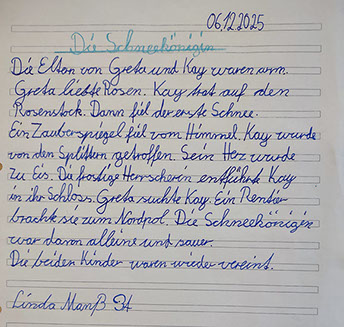 06.12.2025
Die Schneekönigin
Die Eltern von Greta und Kay waren arm.
Greta liebte Rosen. Kay trat auf den
Rosenstock. Dann fiel der erste Schnee.
Ein Zauberspiegel fiel vom Himmel. Kay wurde
von den Splittern getroffen. Sein Herz wurde
zu Eis. Die frostige Herrscherin entführte Kay
in ihr Schloss. Greta suchte Kay. Ein Rentier
brachte sie zum Nordpol. Die Schneekönigin
war dann alleine und sauer.
Die beiden Kinder waren wieder vereint.
Linda Manß